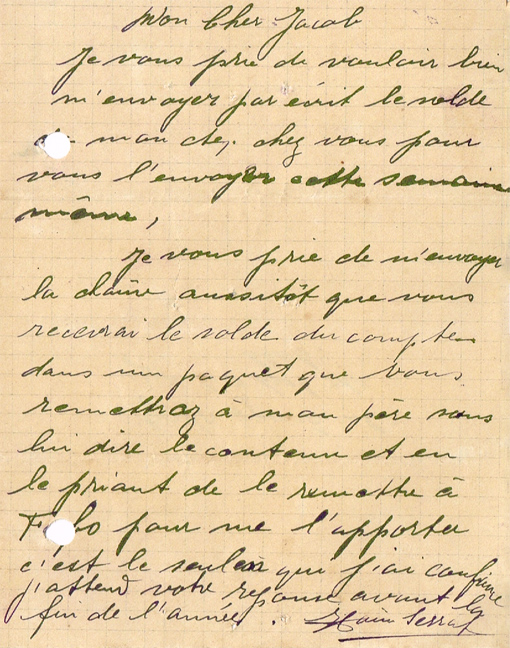 Mon Cher Jacob
Je vous prie de vouloir bien
m'envoyer par écrit le solde
de mon cte, chez vous pour
vous l'envoyer cette semaine
même,
Je vous prie de m'envoyer
la chaîne aussitôt que vous
recevrai le solde du compte
dans un paquet que vous
remettraz à mon père sans
lui dire le contenu et en
le priant de le remettre à
pour me l'apporter
c'est le seul à qui j'ai confiance
j'attend votre reponse avant la
fin de l'année.